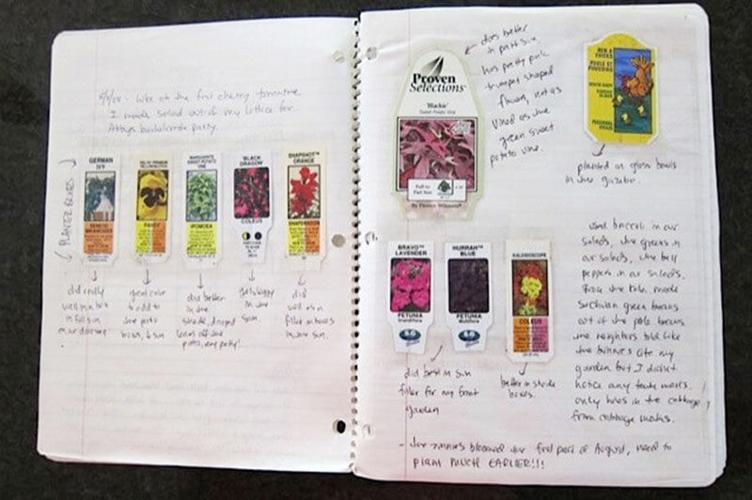 8/4/08 - We ate the first cherry tomatoe
I made salad out of my lettice for
Abbys bachelorette party.
PLANTER BOXES
GERMAN
IVY
SENECIO
PANSY
MARGUERITE
SWEET POTATO
VINE
IPOMOEA
BLACK
DRAGON
COLEUS
SNAPSHOT
ORANGE
SNAPDRAGON
did really
well in box
in full sun
great color
to add to
the patio
boxes, sun
did better
in the
shade, draped
leaves off the
patio, very pretty!
gets leggy
in the
sun.
did
well as a
filler in boxes
in the sun.
Proven
Selections
'Blackie'
Sweet Potato Vine
Full to
Part Sun
By Proven Winners
does better
in part sun
has pretty pink
trumpet shaped
flower, not as
vined as the
green sweet
potato vine.
HEN &
CHICKS
planted in glass bowls
in the gazebo.
BRAVO
LAVENDER
PETUNIA
Grandiflora
HURRAH
BLUE
PETUNIA
Multiflora
KALEIDOSCOPE
COLEUS
did best in sun
filler for my front
garden
better in shade
boxes.
Used broccoli in our
salads, the greens in
our salads, the bell
peppers in our salads.
made
green beans
out of the pole beans.
The neighbors told me
the bunnies ate my
garden but I didnt
notice any tooth marks.
only holes in the cabbage
from cabbage moths.
- The zinnias bloomed the first part of August, need to
plant MUCH EARLIER!!!